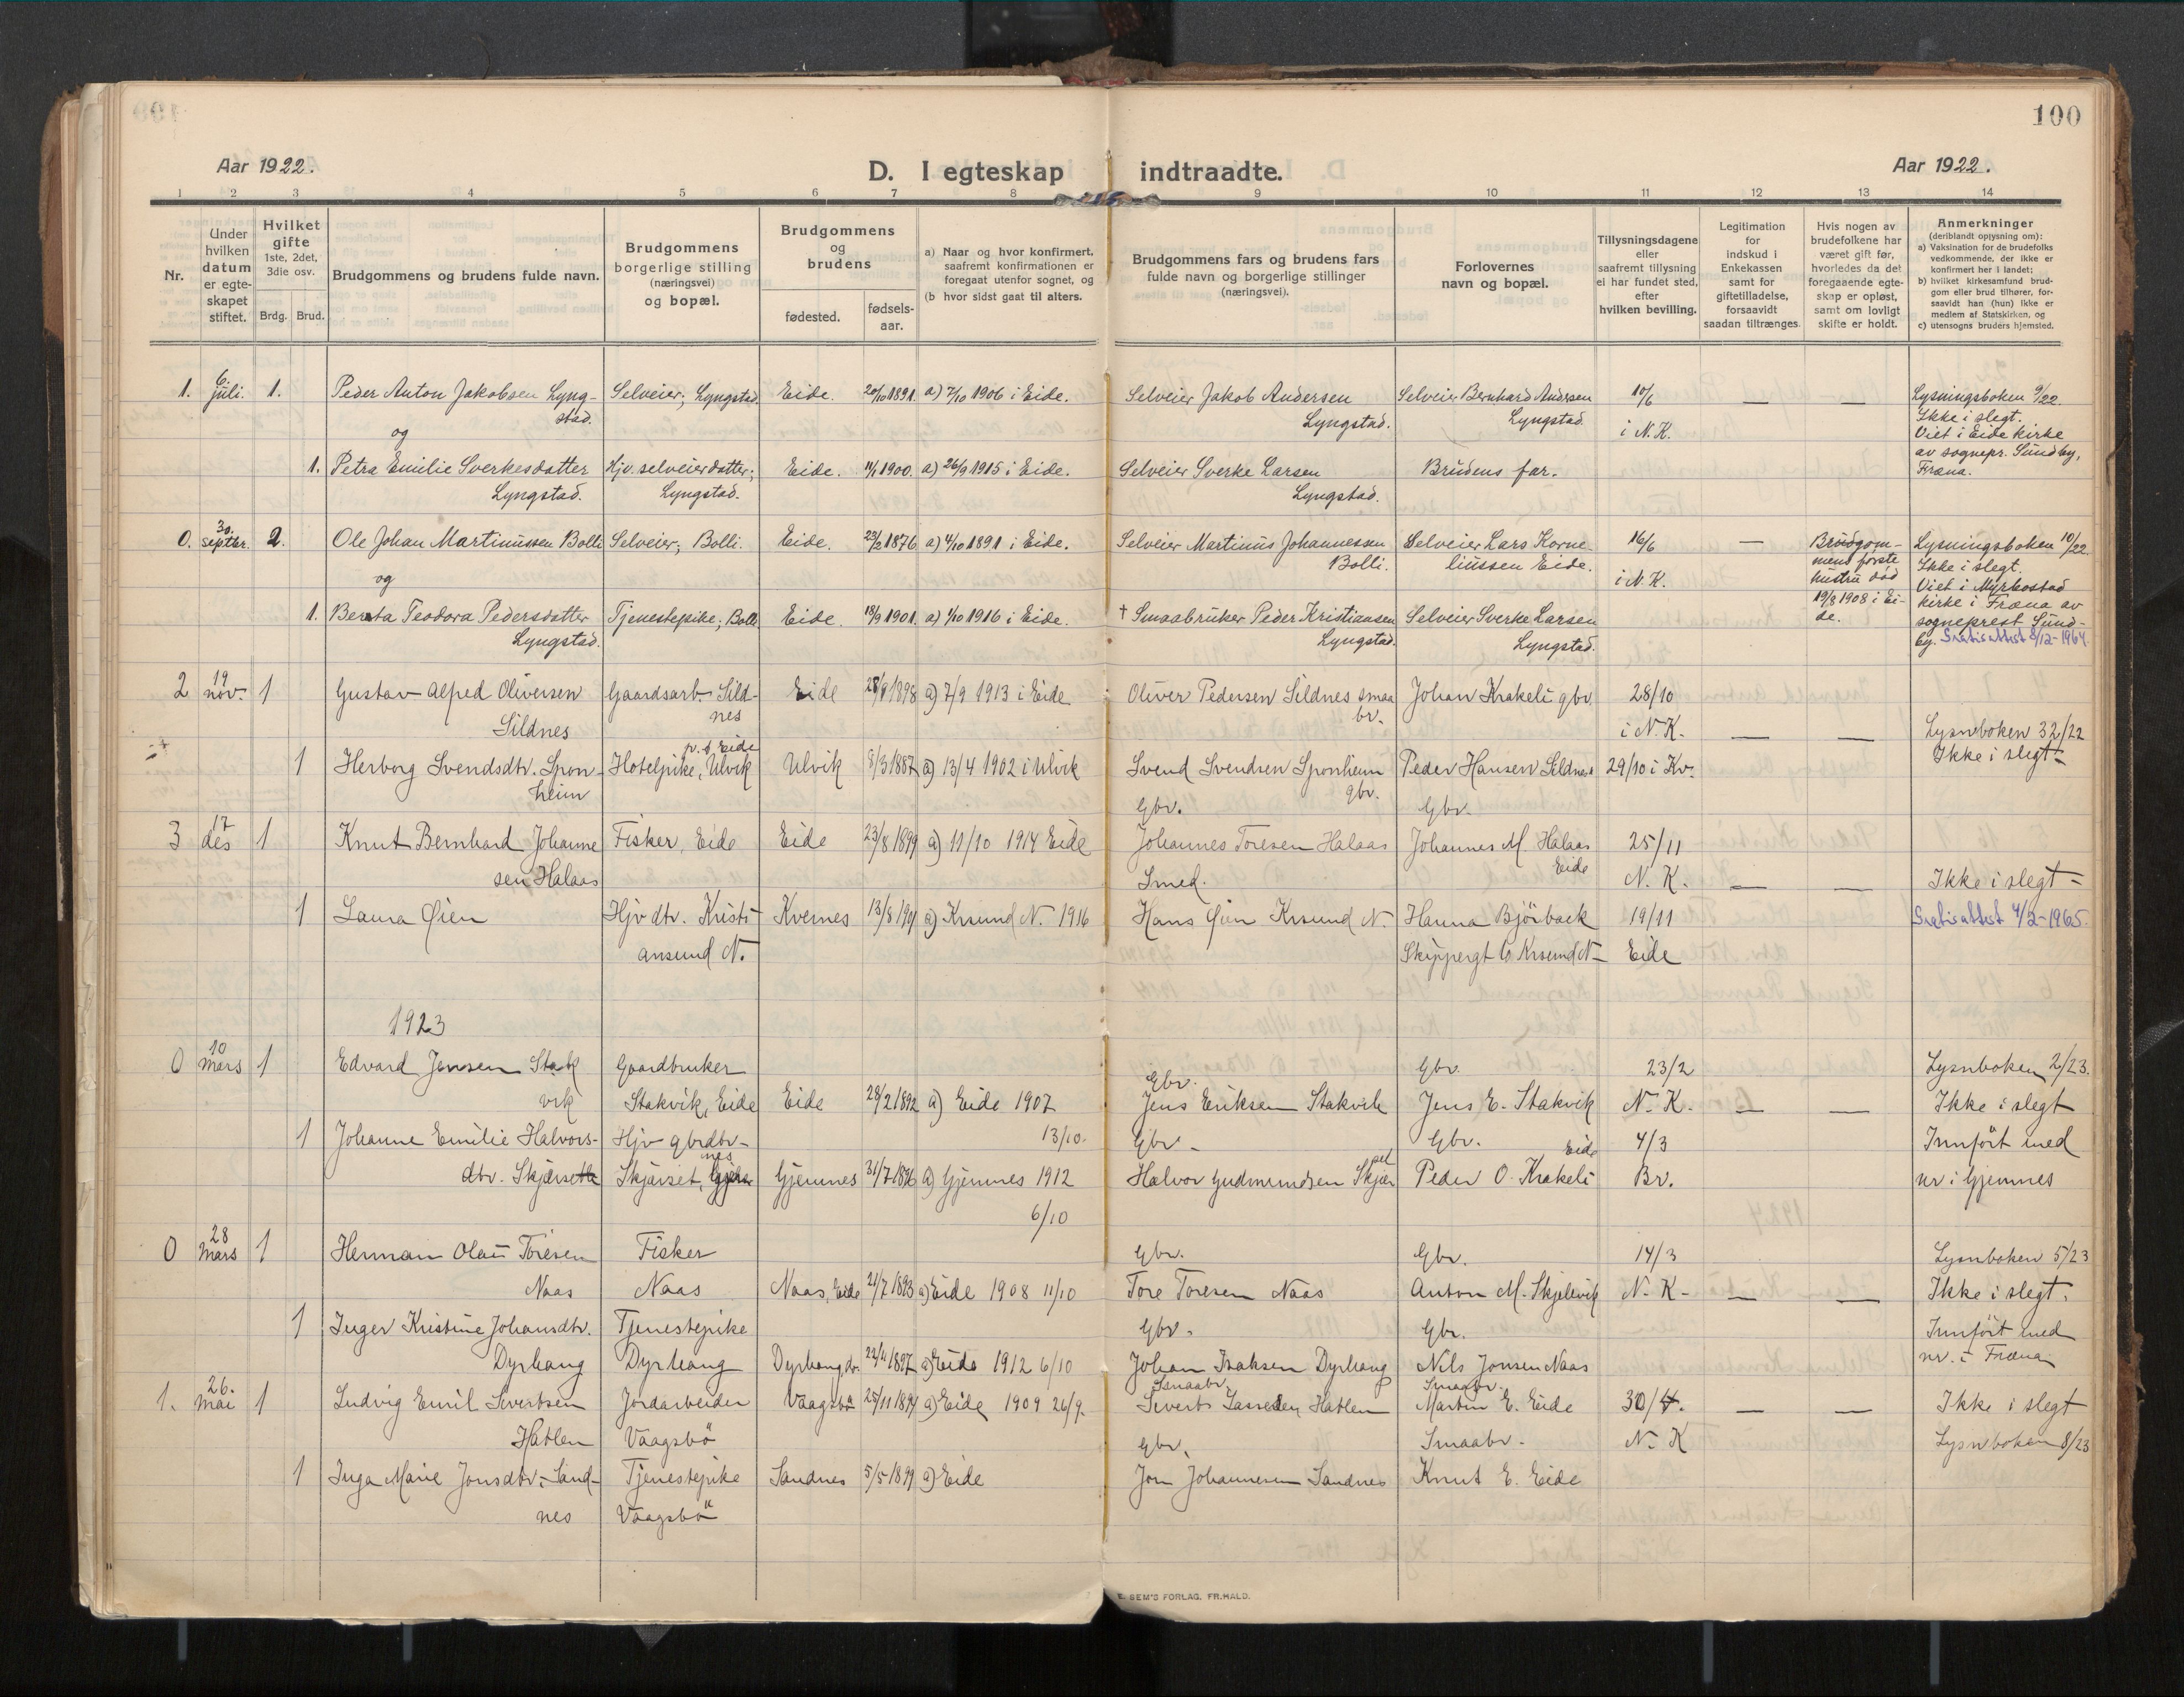 100
Aar 1922.
D. I egteskap indtraadte.
Aar 1922.
1 2 3 4 5 6 7 8 9 10 11 12 13 14
Nr.
Under hvilken datum er egte-skapet stiftet.
Hvilket gifte 1ste, 2det, 3die osv.
Brdg. Brud.
Brudgommens og brudens fulde navn.
Brudgommens borgerlige stilling (næringsvei) og bopæl.
Brudgommens og brudens
fødested.
fødsels-aar.
a) Naar og hvor konfirmert, saafremt konfirmationen er foregaat utenfor sognet, og
(b hvor sidst gaat til alters.
Brudgommens fars og brudens fars fulde navn og borgerlige stillinger (næringsvei).
Forlovernes navn og bopæl.
Tillysningsdagene eller saafremt tillysning ei har fundet sted, efter hvilken bevilling.
Legitimation for indskud i Enkekassen samt for giftetilladelse, forsaavidt saadan tiltrænges.
Hvis nogen av brudefolkene har været gift før, hvorledes da det foregaaende egte-skap er opløst, samt om lovligt skifte er holdt.
Anmerkninger (deriblandt opjysning om):
a) Vaksination for de brudefolks vedkommende, der ikke er konfirmert her i landet;
b) hvilket kirkesamfund brud-gom eller brud tilhører, for-saavidt han (hun) ikke er medlem af Statskirken, og
c) utensogns bruders hjemsted.
1. 6. juli. 1. Peder Anton Jakobsen Lyng-stad. Selveier; Lyngstad. Eide. 20/10 1891. a) 7/10 1906 i Eide. Selveier Jakob Andersen Lyngstad. Selveier Bernhard Andersen Lyngstad 10/6 i N.K. — — Lysningsboken 9/22. Ikke i slegt. Viet i Eide kirke av sognepr. Sundby, Fræna.
og
1. Petra Emilie Sverkesdatter Lyngstad. Hjv. selveierdatter; Lyngstad. Eide. 11/1 1900. a) 26/9 1915 i Eide. Selveier Sverke Larsen Lyngstad. Brudens far.
0. 30. septbr. 2. Ole Johan Martinussen Bolli Selveier; Bolli. Eide. 23/2 1876 a) 4/10 1891 i Eide. Selveier Martinus Johannessen Bolli. Selveier Lars Korne-liussen Eide. 16/6 i N.K. — Brudgom-mens første hustru død 19/8 1908 i Ei-de. Lysningsboken 10/22. Ikke i slegt. Viet i Myrbostad kirke i Fræna av sogneprest Sund-by. Gratisattest 8/12-1964.
og
1. Berta Teodora Pedersdatter Lyngstad. Tjenestepike; Bolli Eide. 18/9 1901. a) 1/10 1916 i Eide. † Smaabruker Peder Kristiansen Lyngstad. Selveier Sverke Larsen Lyngstad.
2 19 nov. 1 Gustav Alfred Oliversen Sildnes Gaardsarb. Sild-nes Eide 28/8 1898 a) 7/9 1913 i Eide Oliver Pedersen Sildnes smaa br. Johan Krakeli gbr 28/10 i N.K. — — Lysnboken 32/22 Ikke i slegt -
1 Herborg Svendsdtr. Spon-heim Hotelpike, Ulvik p.t. Eide Ulvik 8/3 1887 a) 13/4 1902 i Ulvik Svend Svendsen Sponheim gbr. Peder Hansen Sildnes 29/10 i Kv.
Gbr. Gbr.
3 17 des 1 Knut Bernhard Johanne sen Halaas Fisker, Eide Eide 23/8 1899 a) 11/10 1914 Eide Johannes Toresen Halaas Smed. Johannes M. Halaas Eide 25/11 N.K. — — Ikke i slegt -
1 Laura Øien Hjv dtr. Kristi-ansund N. Kvernes 13/8 1901 a) Krsund N. 1916 Hans Øien Krsund N. Hanna Bjørbaek Skippergt 6 Krsund N- 19/11 Eide Gratisattest 4/2-1965.
1923
0 10 Mars 1 Edvard Jensen Stak vik Gaardbruker Stakvik, Eide Eide 28/2 1892 a) Eide 1907 13/10. Gbr. Jens Eriksen Stakvik Gbr. Jens E. Stakvik 23/2 N.K. — — Lysnboken 2/23. Ikke i slegt
1 Johanne Emilie Halvors-dtr. Skjørsett Hjv gbrdtr- Skjørset, Gjemnes Gjemnes 31/7 1896 a) Gjemnes 1912 6/10 Gbr- Halvor Gudmundsen Skjørset Gbr. Peder O. Krakeli Eide 4/3 Br. Innført med nr i Gjemnes
0 28 Mars 1 Herman Olaus Toresen Naas Fisker Naas Naas, Eide 21/7 1893 a) Eide 1908 11/10 Gbr. Tore Toresen Naas Gbr. Anton M. Skjelvik 14/3 N.K- — — Lysnboken 5/23 Ikke i slegt.
1 Inger Kristine Johansdtr. Dyrhaug Tjenestepike Dyrhaug Dyrhaug, 22/4 1897 a) Eide 1912 6/10 Gbr. Johan Isaksen Dyrhaug Gbr. Nils Jonsen Naas Innført med nr. i Fræna
1. 26. Mai 1 Ludvig Emil Sivertsen Hatlen Jordarbeider Vaagsbö Vaagsbö 25/11 1894 a) Eide 1909 26/9. Smaabr. Sivert Lassesen Hatlen Smaabr. Martin E. Eide 30/4. N.K — — Ikke i slegt Lysnboken 8/23
1 Inga Marie Jonsdtr. Sand-nes Tjenestepike Vaagsbö Sandnes 5/5 1899 a) Eide Gbr. Jon Johannesen Sandnes Smaabr. Knut E. Eide
E. SEM'S FORLAG. FR.HALD.